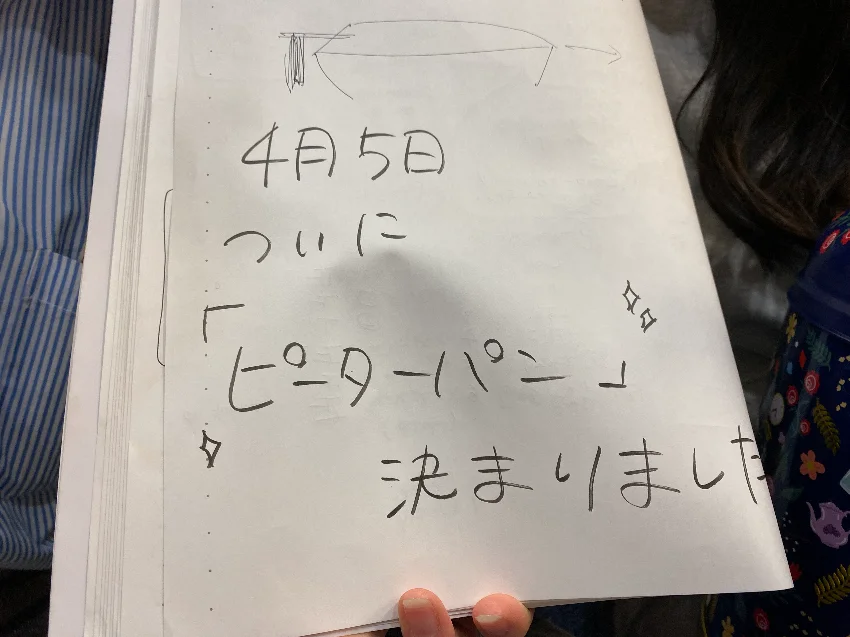 4月5日
ついに
「ピーターパン」
決まりました